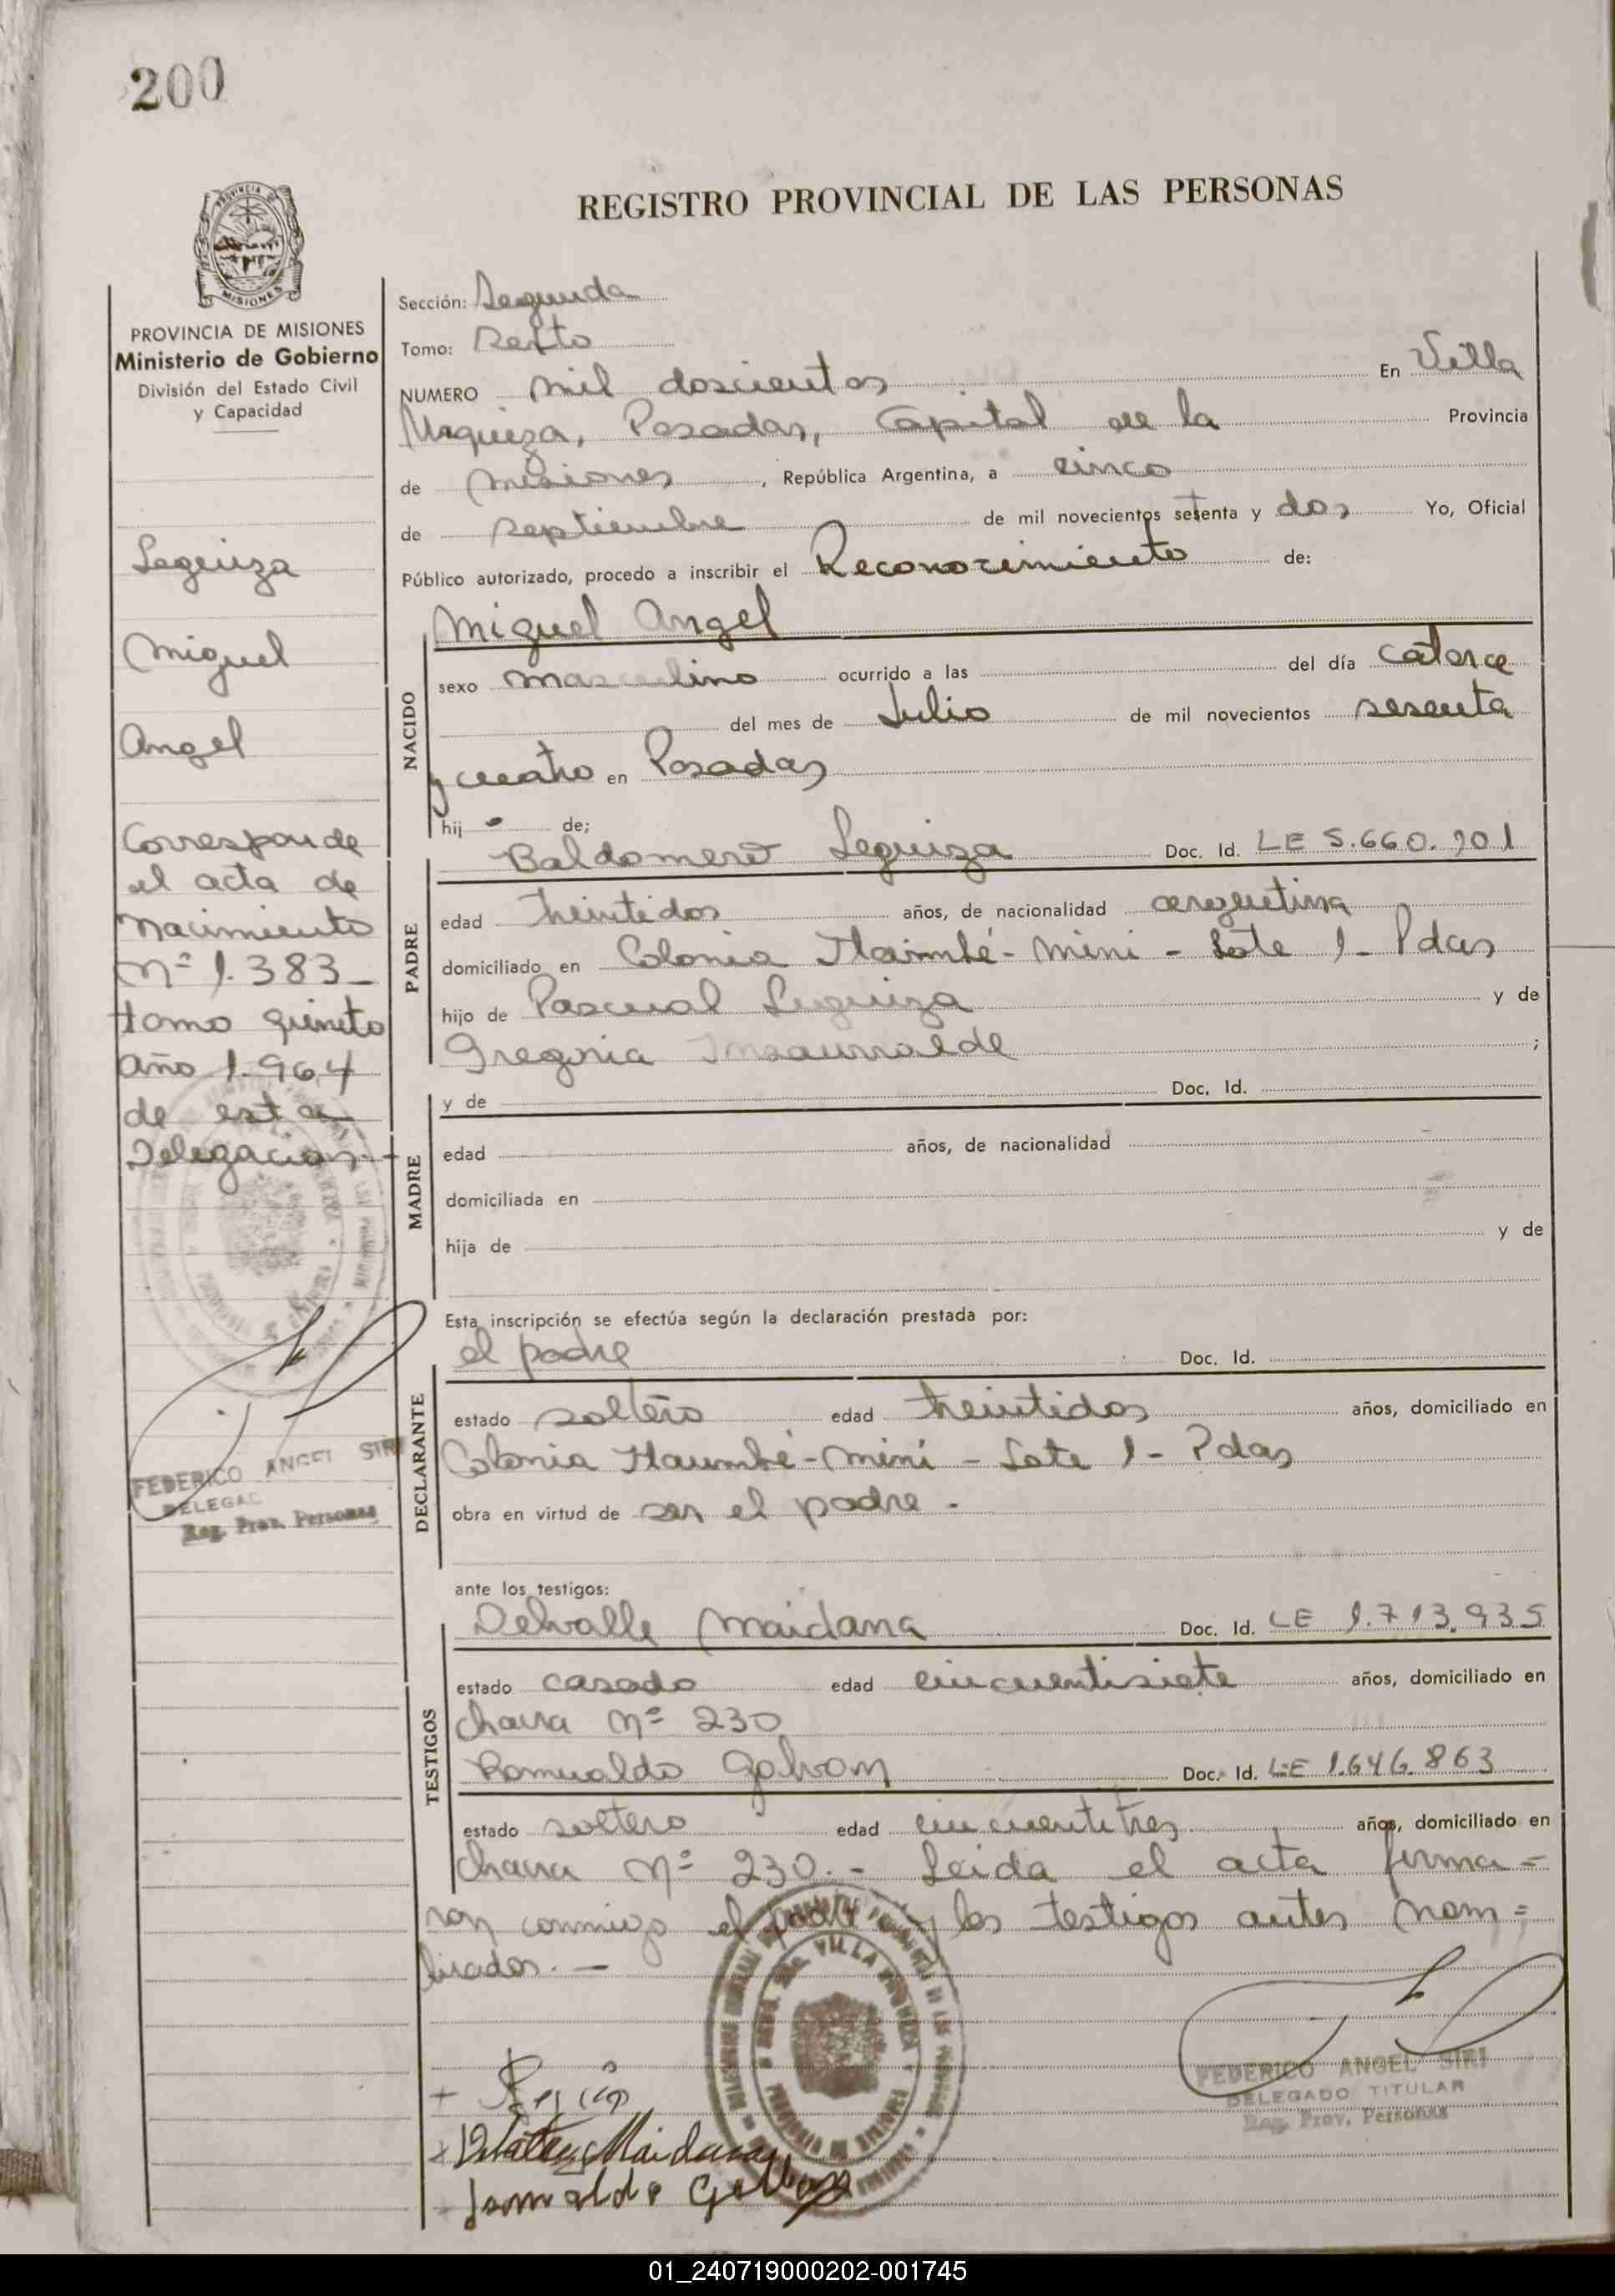 200
REGISTRO PROVINCIAL DE LAS PERSONAS
PROVINCIA DE MISIONES
Ministerio de Gobierno
División del Estado Civil
y Capacidad
Leguiza
Miguel
Angel
Corresponde
el acta de
nacimiento
Nº 1.383-
tomo quinto
Año 1.964
de esta
Delegación.-
FEDERICO ANGEL SIRI
DELEGAD
Reg. Prov. Personas
Sección: Segunda
Tomo: Sexto
NUMERO mil doscientos En Villa
Urquiza, Posadas, Capital de la Provincia
de Misiones, República Argentina, a cinco
de septiembre de mil novecientos setenta y dos Yo, Oficial
Público autorizado, procedo a inscribir el Reconocimiento de:
NACIDO
Miguel Angel
sexo masculino ocurrido a las del día catorce
del mes de Julio de mil novecientos sesenta
y cuatro en Posadas
hij o de;
PADRE
Baldomero Leguiza Doc. Id. LE 5.660.901
edad treintidos años, de nacionalidad argentina
domiciliado en Colonia Itaimbé-Mini - Lote 1- Pdas
hijo de Pascual Leguiza y de
Gregoria Insaurralde ;
MADRE
y de Doc. Id.
edad años, de nacionalidad
domiciliada en
hija de y de
Esta inscripción se efectúa según la declaración prestada por:
DECLARANTE
el padre Doc. Id.
estado soltero edad treintidos años, domiciliado en
Colonia Itaimbé-Mini - Lote 1- Pdas
obra en virtud de ser el padre -
ante los testigos:
TESTIGOS
Delvalle Maidana Doc. Id. LE 1.713.935
estado casado edad cincuentisiete años, domiciliado en
chacra Nº 230
Romualdo Galvan Doc. Id. LE 1.646.863
estado soltero edad cincuentitres años, domiciliado en
chacra Nº 230.- Leida el acta firma=
ron conmigo el padre y los testigos antes nom=
brados. -
Maidana
FEDERICO ANGEL SIRI
DELEGADO TITULAR
Reg. Prov. Personas
01_240719000202-001745